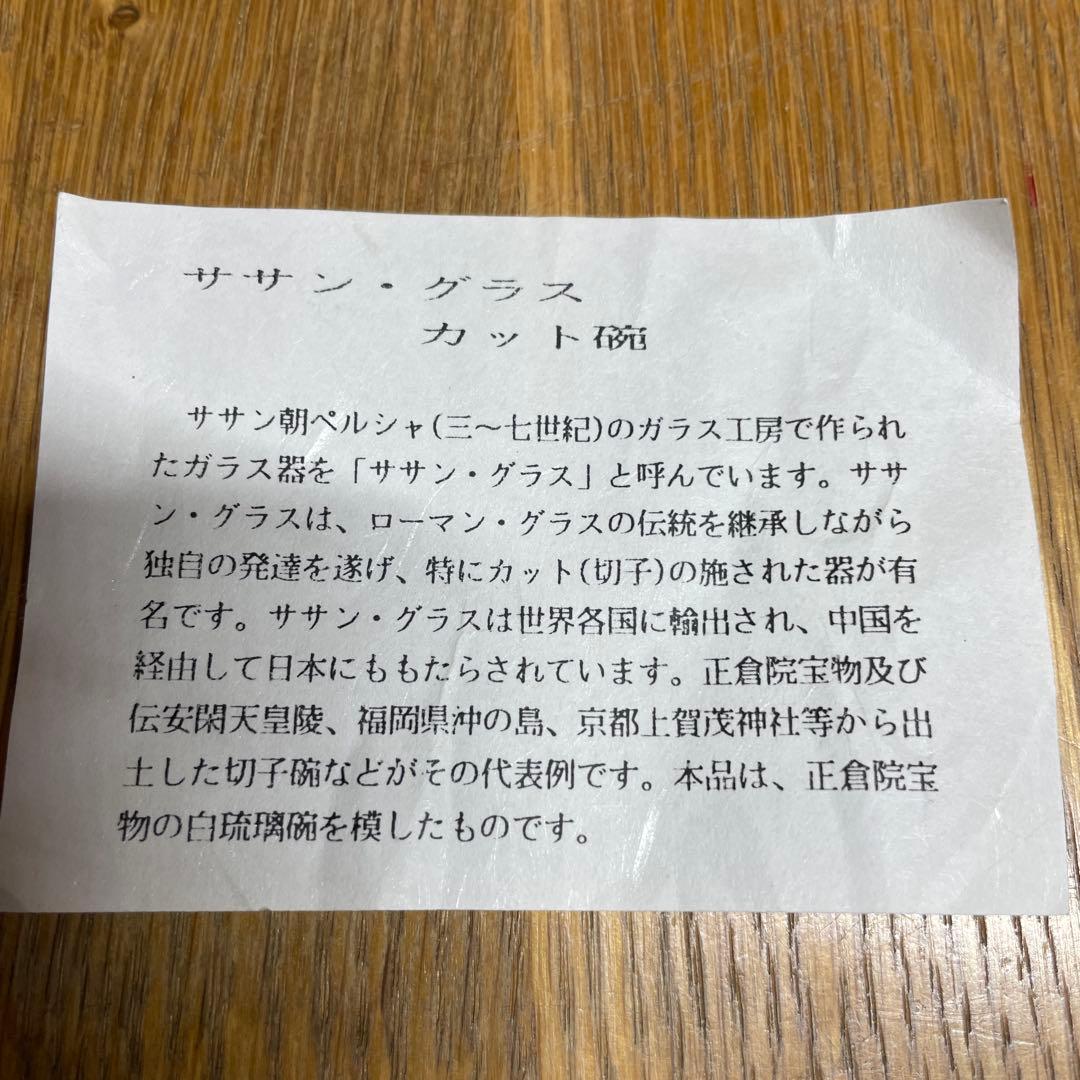 ササン・グラス
カット碗
ササン朝ペルシャ(三〜七世紀)のガラス工房で作られ
たガラス器を「ササン・グラス」と呼んでいます。ササ
ン・グラスは、ローマン・グラスの伝統を継承しながら
独自の発達を遂げ、特にカット(切子)の施された器が有
名です。ササン・グラスは世界各国に輸出され、中国を
経由して日本にももたらされています。正倉院宝物及び
伝安閑天皇陵、福岡県沖の島、京都上賀茂神社等から出
土した切子碗などがその代表例です。本品は、正倉院宝
物の白琉璃碗を模したものです。